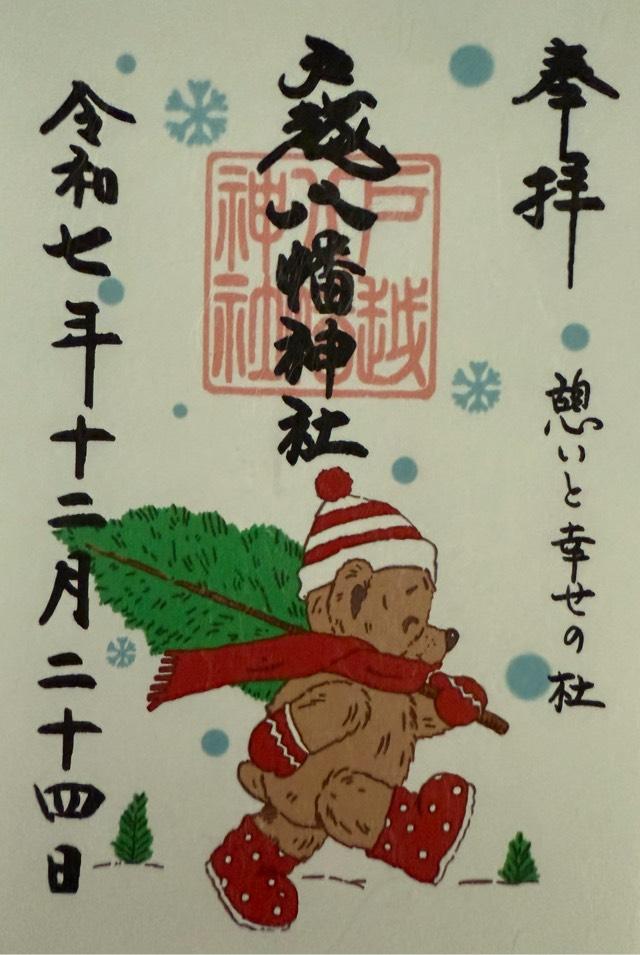 奉拝
憩いと幸せの杜
戸越八幡神社
戸越
八幡
神社
令和七年十二月二十四日